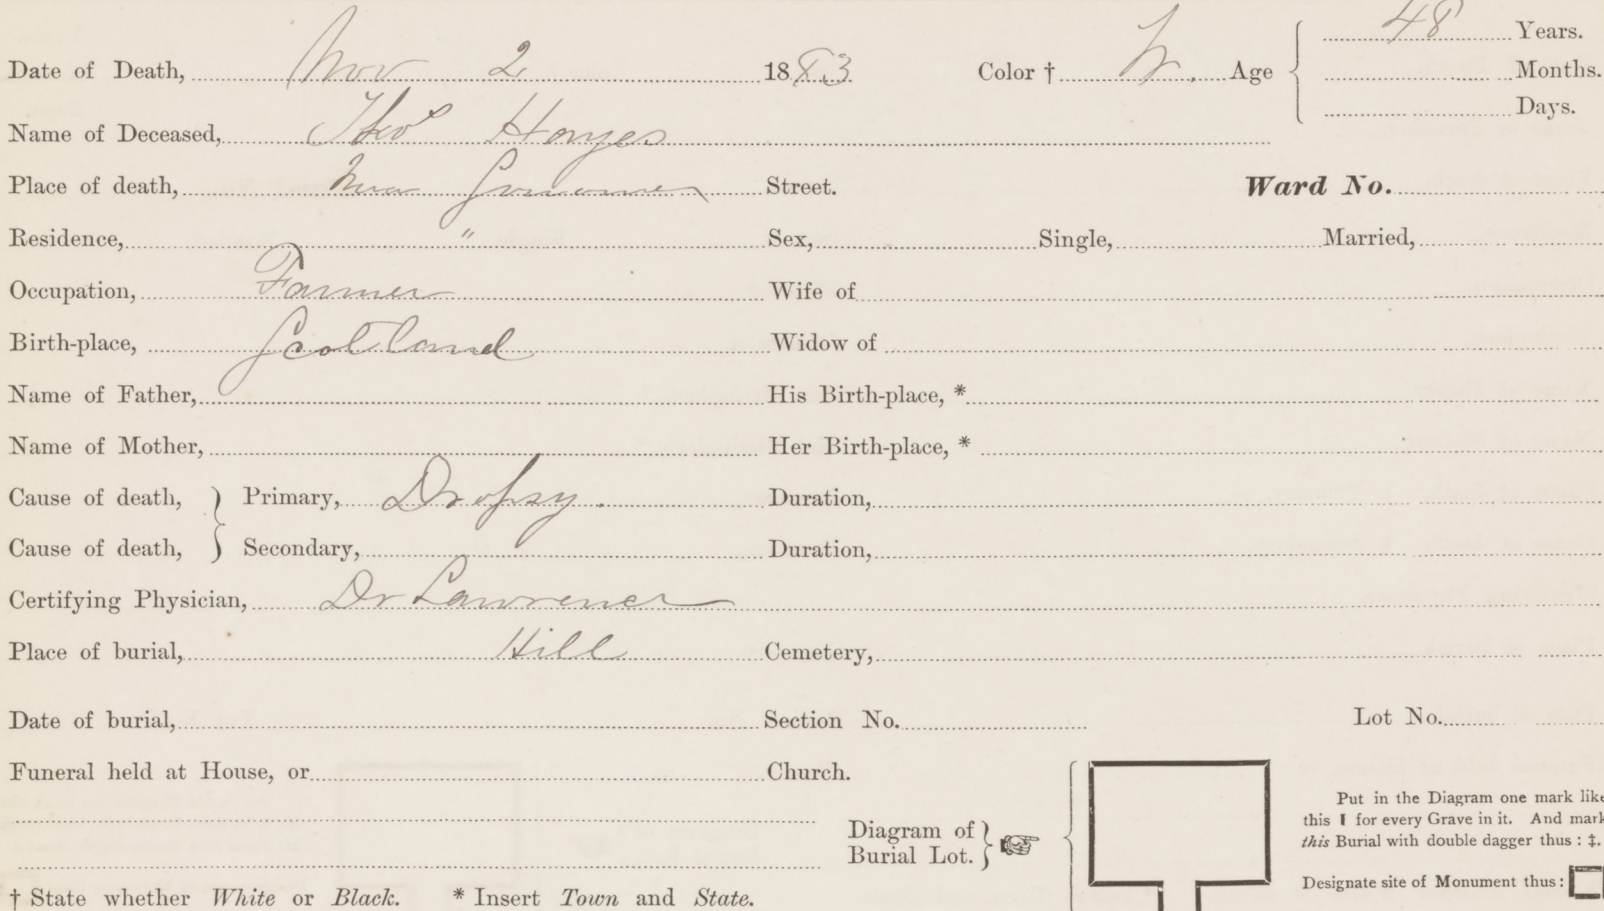 Date of Death, Nov 2 1883 Color † W. Age 48 Years.
Months.
Days.
Name of Deceased, Thos Hayes
Place of death, Near Street. Ward No.
Residence, " Sex, Single, Married,
Occupation, Farmer Wife of
Birth-place, Scotland Widow of
Name of Father, His Birth-place, *
Name of Mother, Her Birth-place, *
Cause of death, Primary, Dropsy. Duration,
Cause of death, Secondary, Duration,
Certifying Physician, Dr Lawrence
Place of burial, Hill Cemetery,
Date of burial, Section No. Lot No.
Funeral held at House, or Church.
Diagram of
Burial Lot.
Put in the Diagram one mark like
this I for every Grave in it. And mark
this Burial with double dagger thus : ‡.
Designate site of Monument thus :
† State whether White or Black. * Insert Town and State.